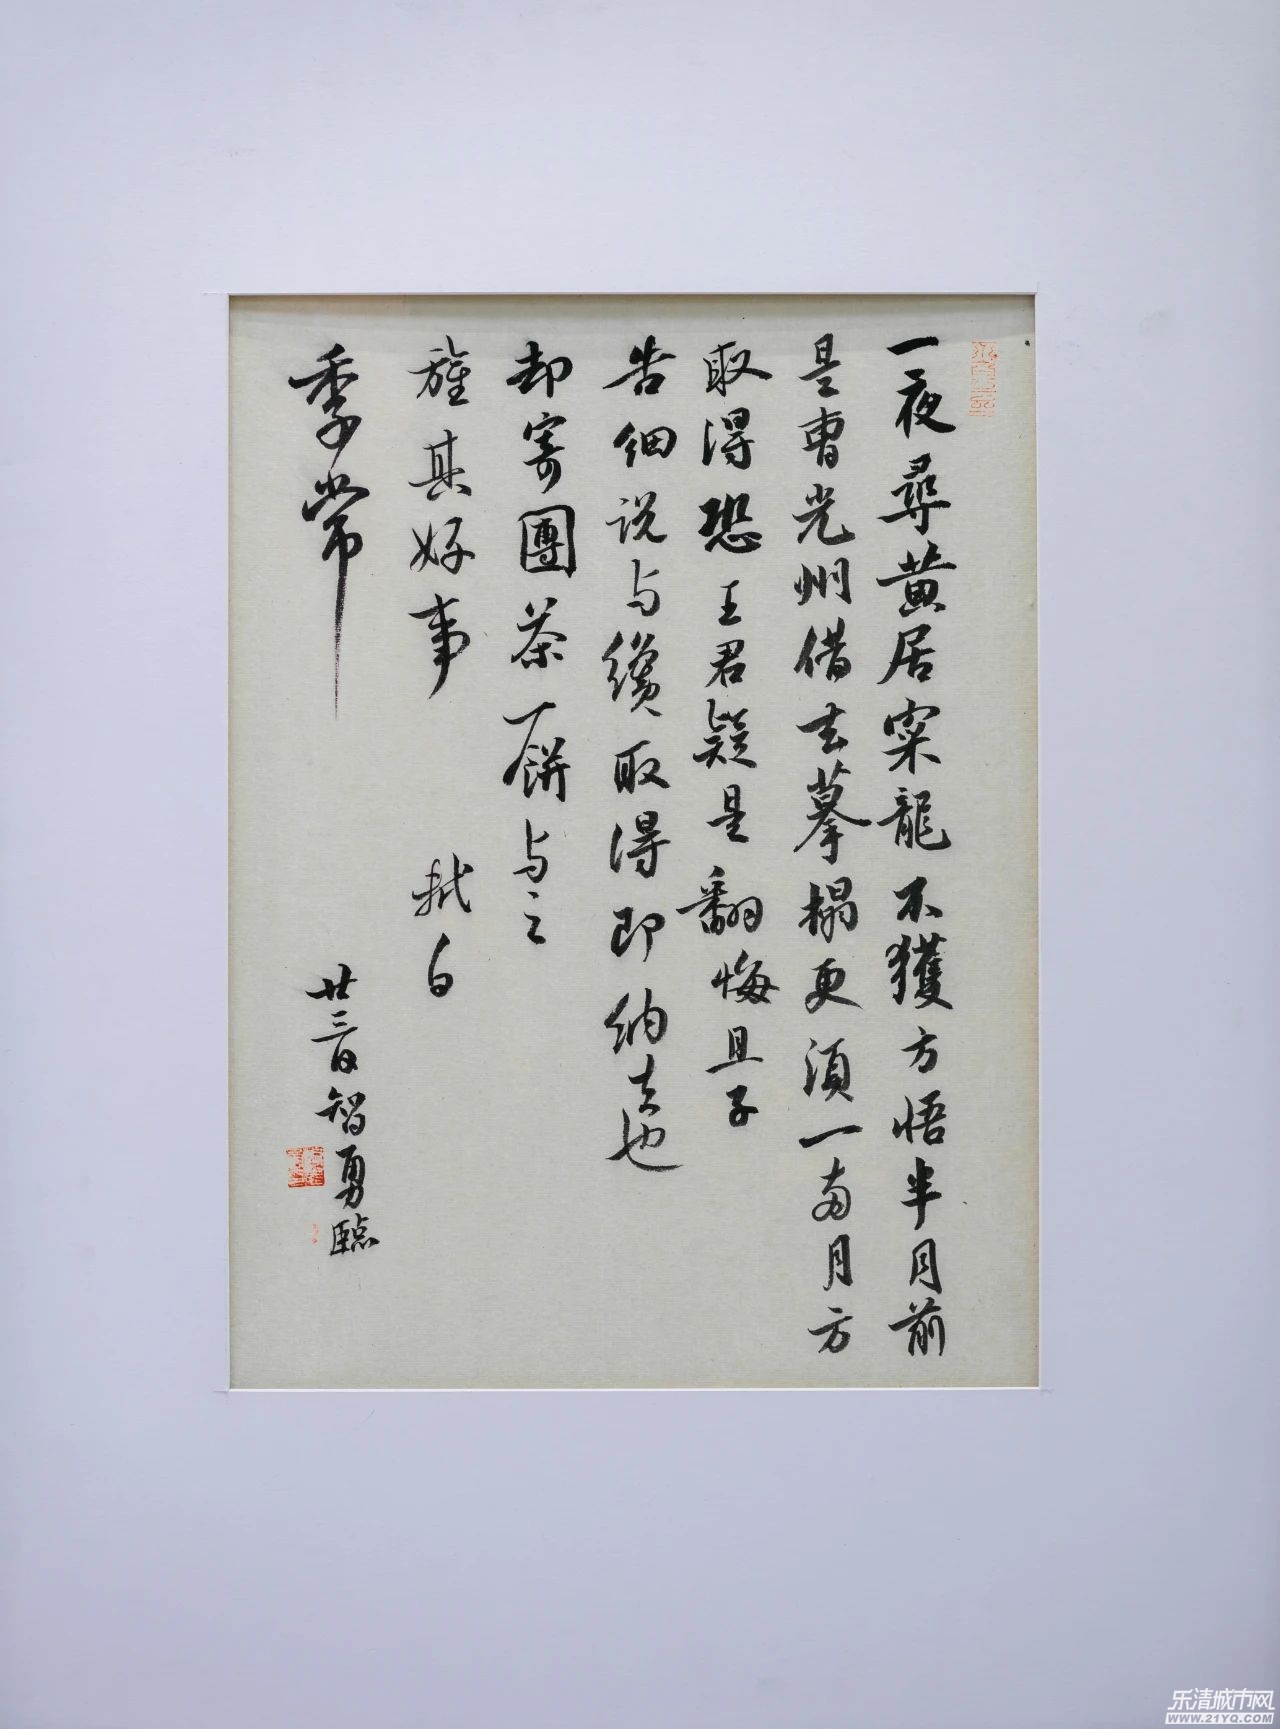 一夜尋黄居寀龍不獲方悟半月前
是曹光州借去摹搨更須一兩月方
取得恐王君疑是翻悔且子
告細説与纔取得即納去也
却寄團茶一餅与之
旌其好事
軾白
季常
廿三日
智勇臨
乐清城市网
WWW.21YQ.COM